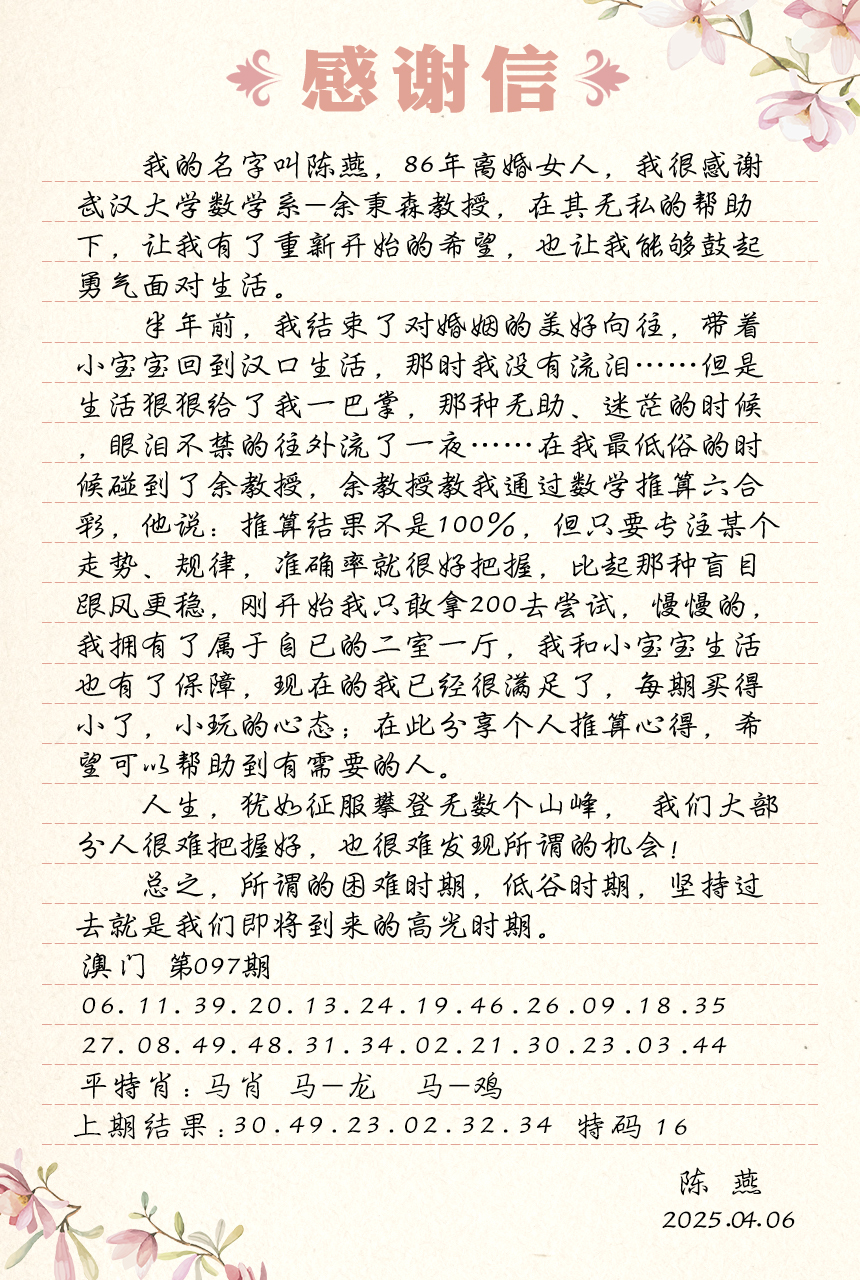 感谢信
我的名字叫陈燕，86年离婚女人，我很感谢
武汉大学数学系—余秉森教授，在其无私的帮助
下，让我有了重新开始的希望，也让我能够鼓起
勇气面对生活。
半年前，我结束了对婚姻的美好向往，带着
小宝宝回到汉口生活，那时我没有流泪……但是
生活狠狠给了我一巴掌，那种无助、迷茫的时候
，眼泪不禁的往外流了一夜……在我最低俗的时
候碰到了余教授，余教授教我通过数学推算六合
彩，他说：推算结果不是100%，但只要专注某个
走势、规律，准确率就很好把握，比起那种盲目
跟风更稳，刚开始我只敢拿200去尝试，慢慢的，
我拥有了属于自已的二室一厅，我和小宝宝生活
也有了保障，现在的我已经很满足了，每期买得
小了，小玩的心态；在此分享个人推算心得，希
望可以帮助到有需要的人。
人生，犹如征服攀登无数个山峰， 我们大部
分人很难把握好，也很难发现所谓的机会！
总之，所谓的困难时期，低谷时期，坚持过
去就是我们即将到来的高光时期。
澳门 第097期
06.11.39.20.13.24.19.46.26.09.18.35
27.08.49.48.31.34.02.21.30.23.03.44
平特肖：马肖 马—龙 马—鸡
上期结果：30.49.23.02.32.34 特码 16
陈 燕
2025.04.06